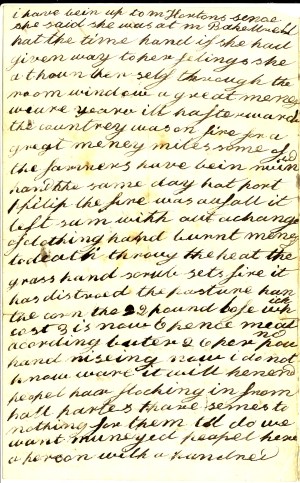 i have bein up to m Hortons sence
she said she was at m Bakewell
hat the time hand if she had
given way to her felings she
a thoun her self through the
room window a great meney
weare yeare ill hafterwards
the countrey was on fire for a
great meney miles some of
the farmers have been ruined
hand the same day hat port
Philip the fire was awfall it
left sum with out a change
of clothing hand burnt meney
to death throug the heat the
grass hand scrub sets fire it
has distroed the pasture han
the corn the 2 pound lofe wich
cost 3 is now 6 pence meat
acording buter 2 6 per pound
hand riseing now i do not
know ware it will hend
peopel haar flocking in from
hall partes thare semes to
nothing for them to do we
want muneyed peopel here
a person with a hundred